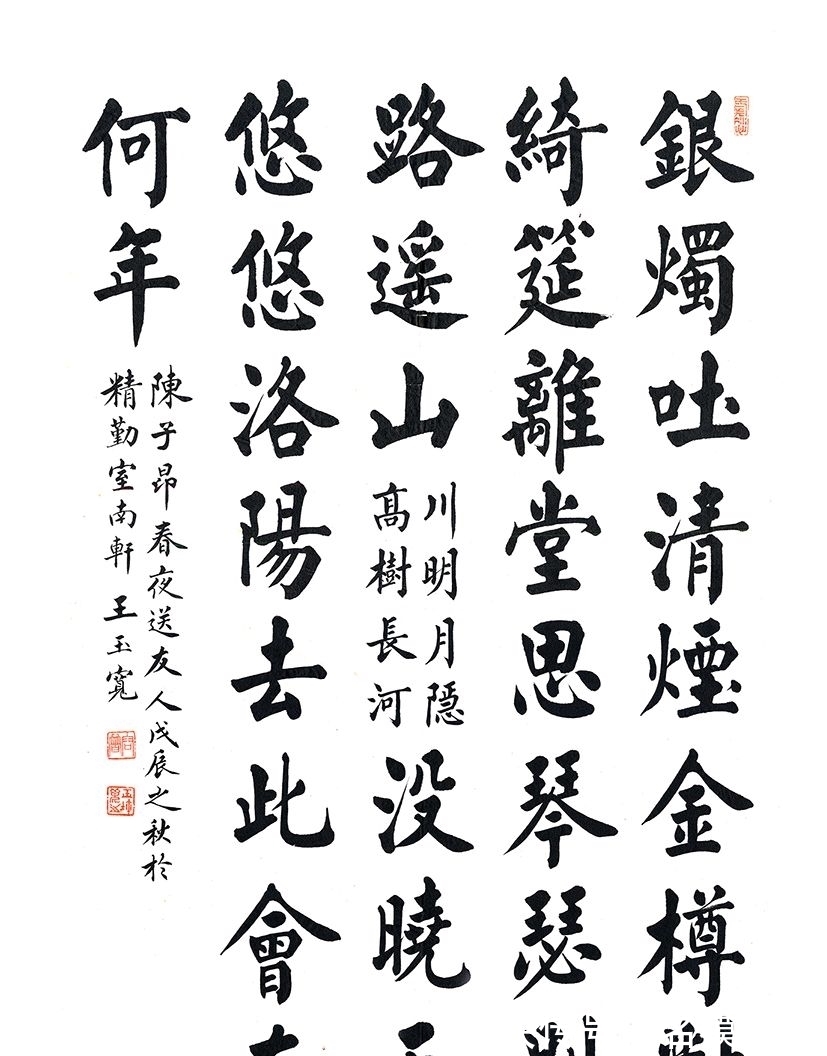 銀燭吐清煙金樽
綺筵離堂思琴瑟
路遥山
川明月隠
髙樹長河
没曉
悠悠洛陽去此會
何年
陳子昂春夜送友人戊辰之秋於
精勤室南軒 王玉寬